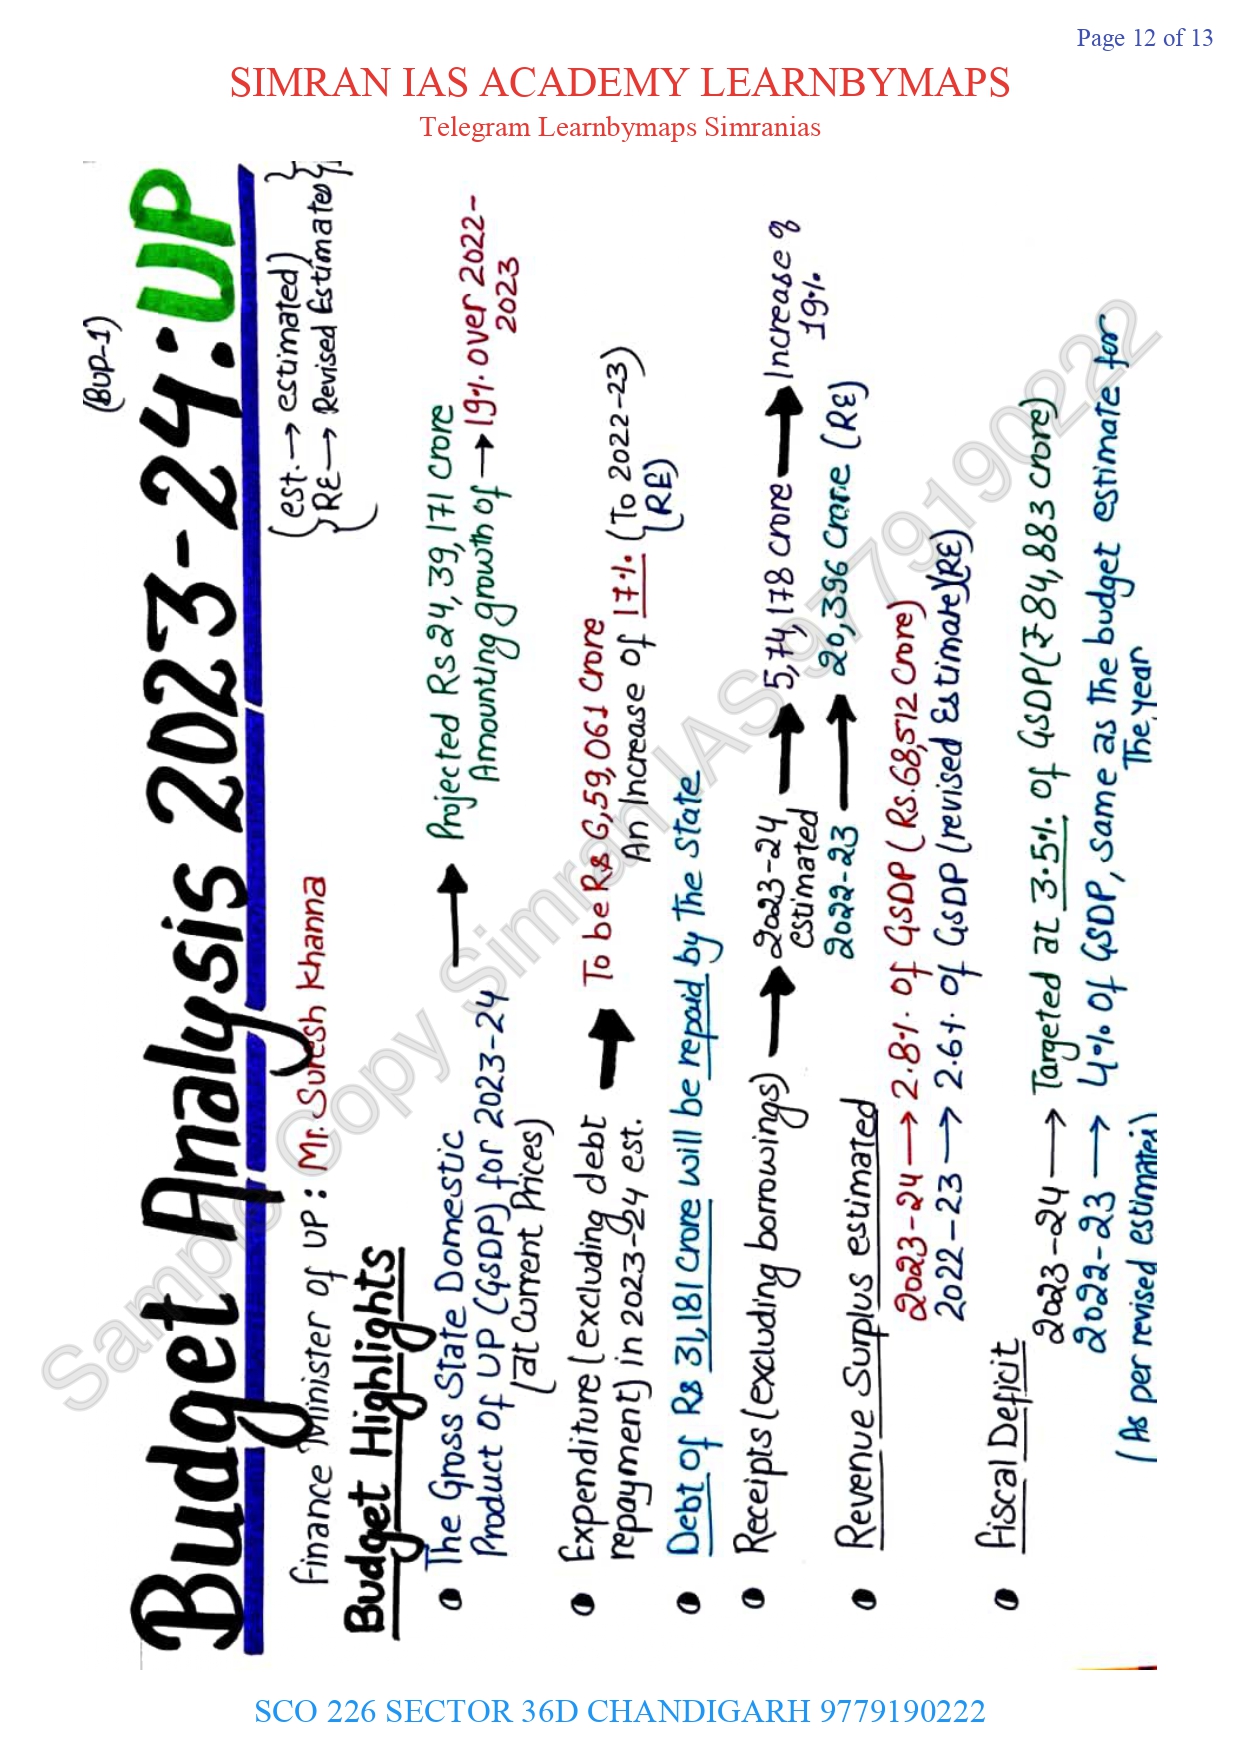 Page 12 of 13
SIMRAN IAS ACADEMY LEARNBYMAPS
Telegram Learnbymaps Simranias
(BUP-1)
Budget Analysis 2023-24: UP
Finance Minister of UP: Mr. Suresh Khanna
{(est. → estimated)}
{RE → Revised Estimates}
Budget Highlights
• The Gross State Domestic → Projected Rs 24,39,171 crore
Product Of UP (GSDP) for 2023-24 Amounting growth of → 19% over 2022-
(at Current Prices) 2023
• Expenditure (excluding debt → To be Rs 6,59,061 crore
repayment) in 2023-24 est. An Increase of 17%. (To 2022-23)
(RE)
• Debt of Rs 31,181 crore will be repaid by The State
• Receipts (excluding borrowings) → 2023-24 → 5,74,178 crore → Increase of
estimated 19%
2022-23 → 20,396 Crore (RE)
• Revenue Surplus estimated
2023-24 → 2.8%. of GSDP (Rs.68,512 crore)
2022-23 → 2.6%. of GSDP (revised Estimate)(RE)
• Fiscal Deficit
2023-24 → Targeted at 3.5%. of GSDP (₹84,883 crore)
2022-23 → 4% Of GSDP, same as The budget estimate for
The year
(As per revised estimates)
Sample Copy Simran IAS 9779190222
SCO 226 SECTOR 36D CHANDIGARH 9779190222